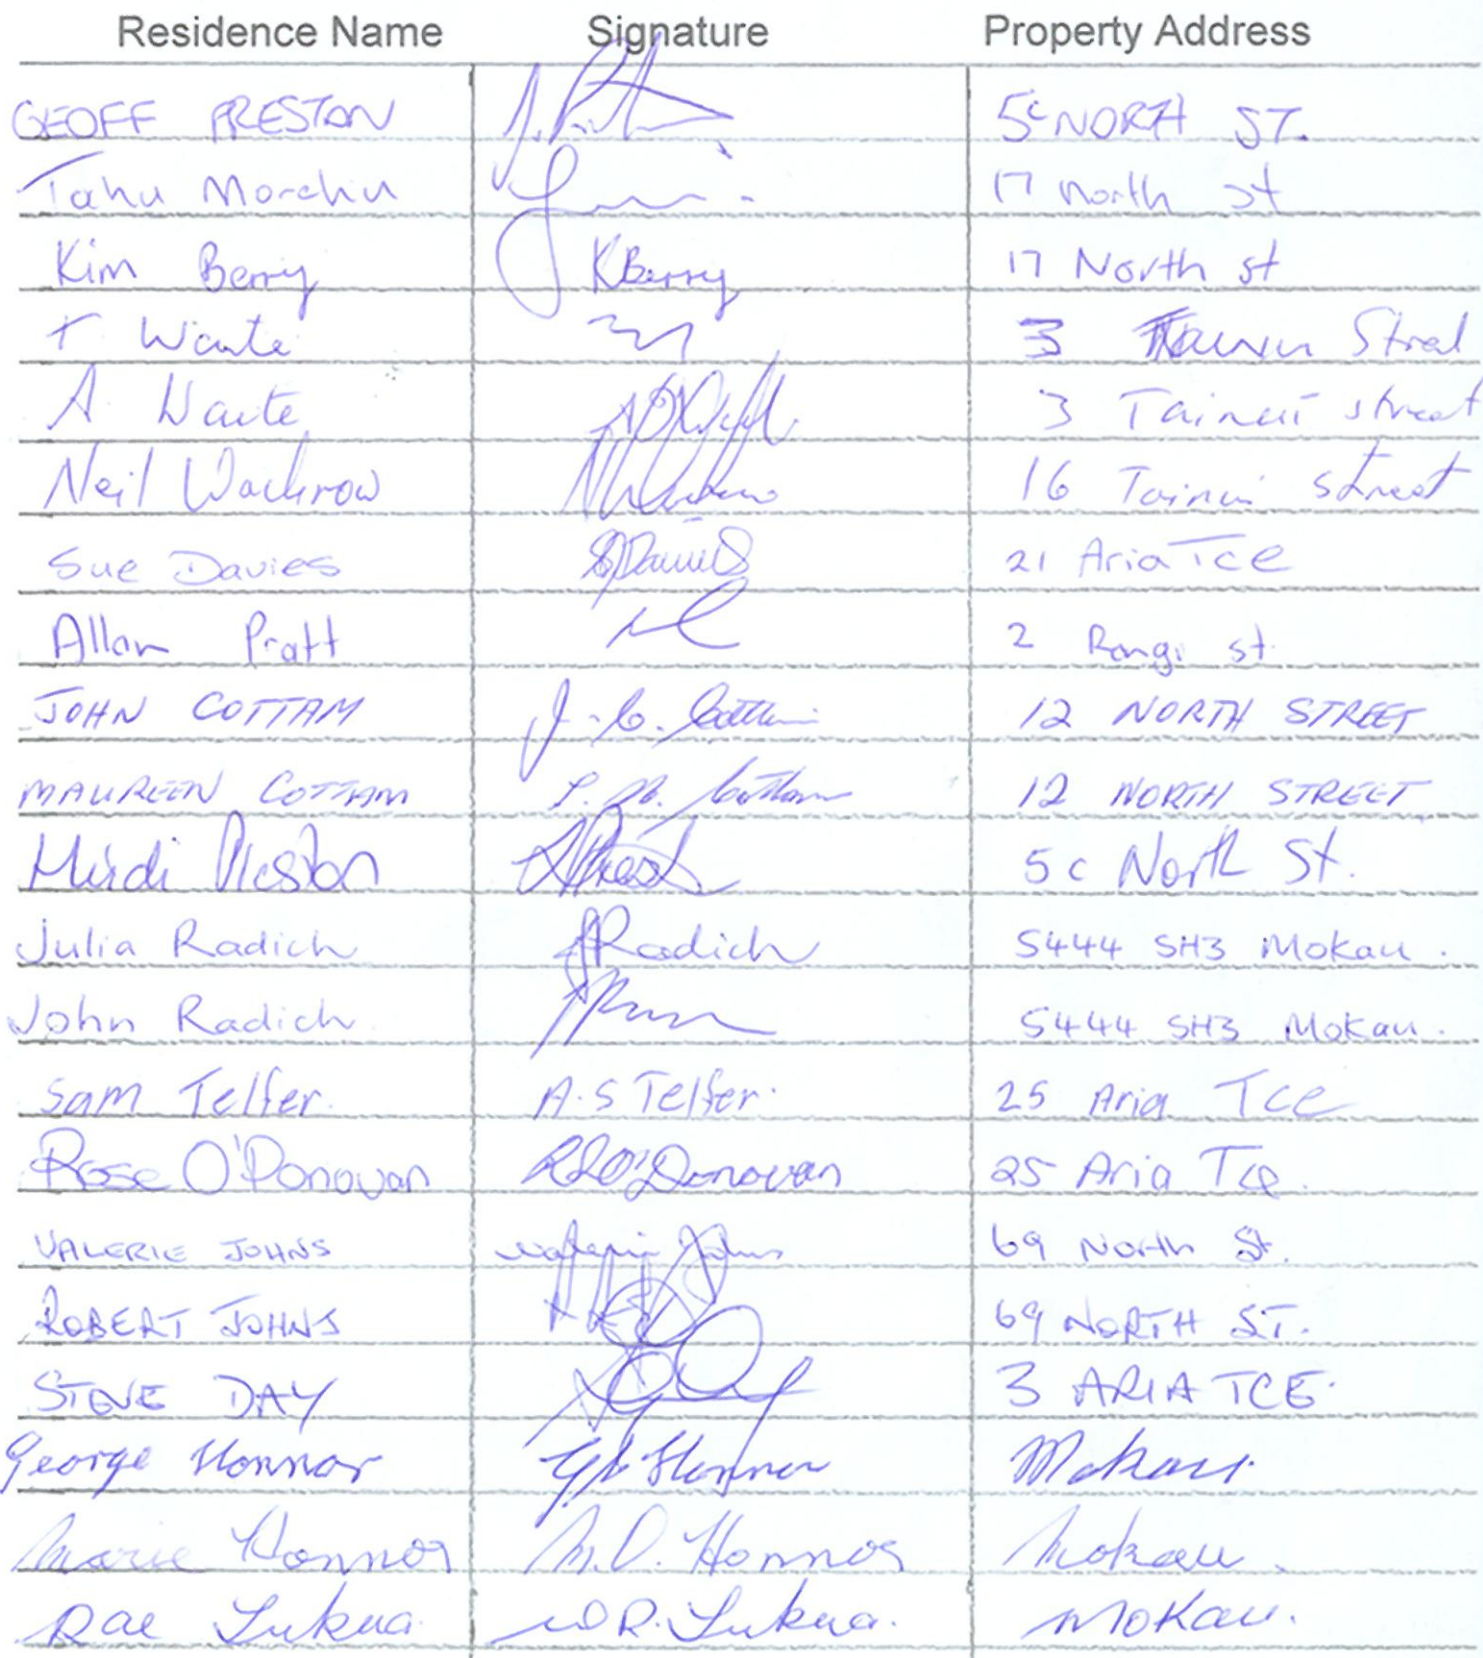 Residence Name Signature Property Address
GEOFF PRESTON 5c NORTH ST.
Tahu Morehu 17 North st
Kim Berry KBerry 17 North st
T Waite 3 Street
A Waite 3 Tainui street
Neil Wackrow 16 Tainui street
Sue Davies SJDavies 21 Aria Tce
Allan Pratt 2 Rangi st
JOHN COTTAM J. C. Cottam 12 NORTH STREET
MAUREEN COTTAM Cottam 12 NORTH STREET
Heidi Preston 5c North St.
Julia Radich JRadich 5444 SH3 Mokau.
John Radich 5444 SH3 Mokau.
Sam Telfer. A.S Telfer. 25 Aria Tce
Rose O'Donovan O'Donovan 25 Aria Tce.
VALERIE JOHNS Valerie Johns 69 North St.
ROBERT JOHNS 69 NORTH ST.
STEVE DAY 3 ARIA TCE.
George Honnor Honnor Mokau.
Marie Honnor M.D. Honnor Mokau.
Rae Tukua. W R. Tukua. Mokau.